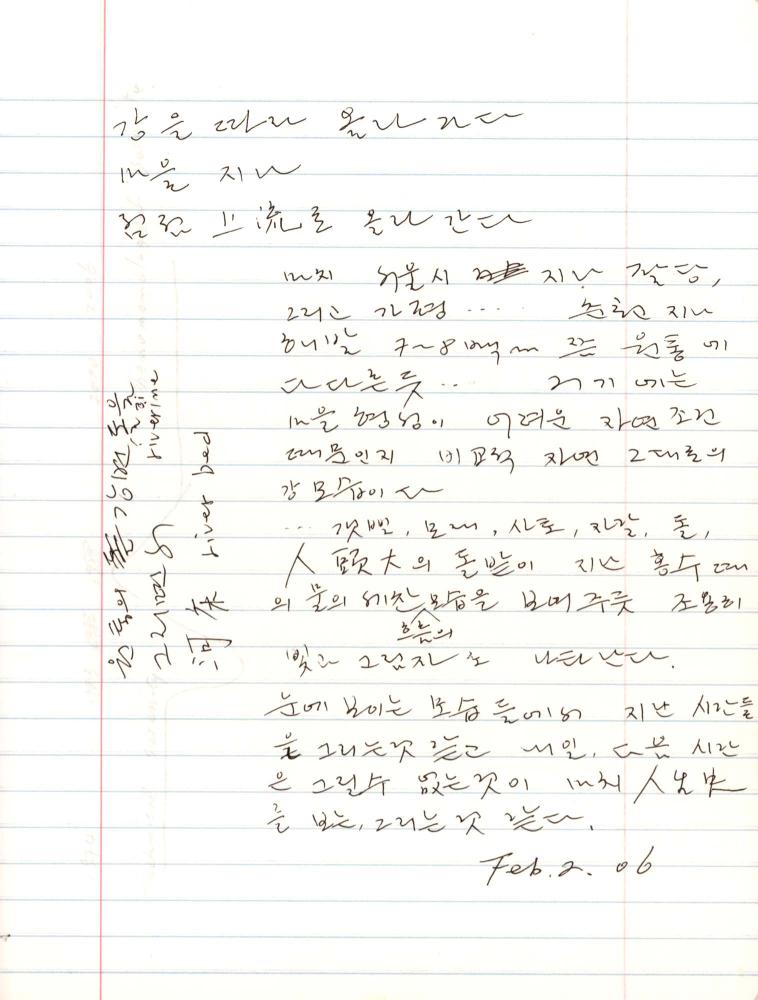 강을 따라 올라 가다
마을 지나
점점 上流로 올라 간다
마치 서울시 지나 팔당,
그리고 가평 .... 춘천 지나
해발 7~8백m 쯤 원통에
다다른 듯 .. 거기에는
마을 형성이 어려운 자연 조건
때문인지 비교적 자연 그대로의
강 모습이다
... 갯뻘, 모래, 사토, 자갈, 돌,
人頭大의 돌밭이 지난 홍수 때
의 물의 세찬 모습을 보여주듯 조용히
흐름의
빛과 그림자로 나타난다.
눈에 보이는 모습들에서 지난 시간들
을 그리는것 같고 내일, 다음 시간
은 그릴수 없는것이 마치 人生史
를 보는, 그리는 것 같다.
Feb. 2. 06
riverine
河床 river bed